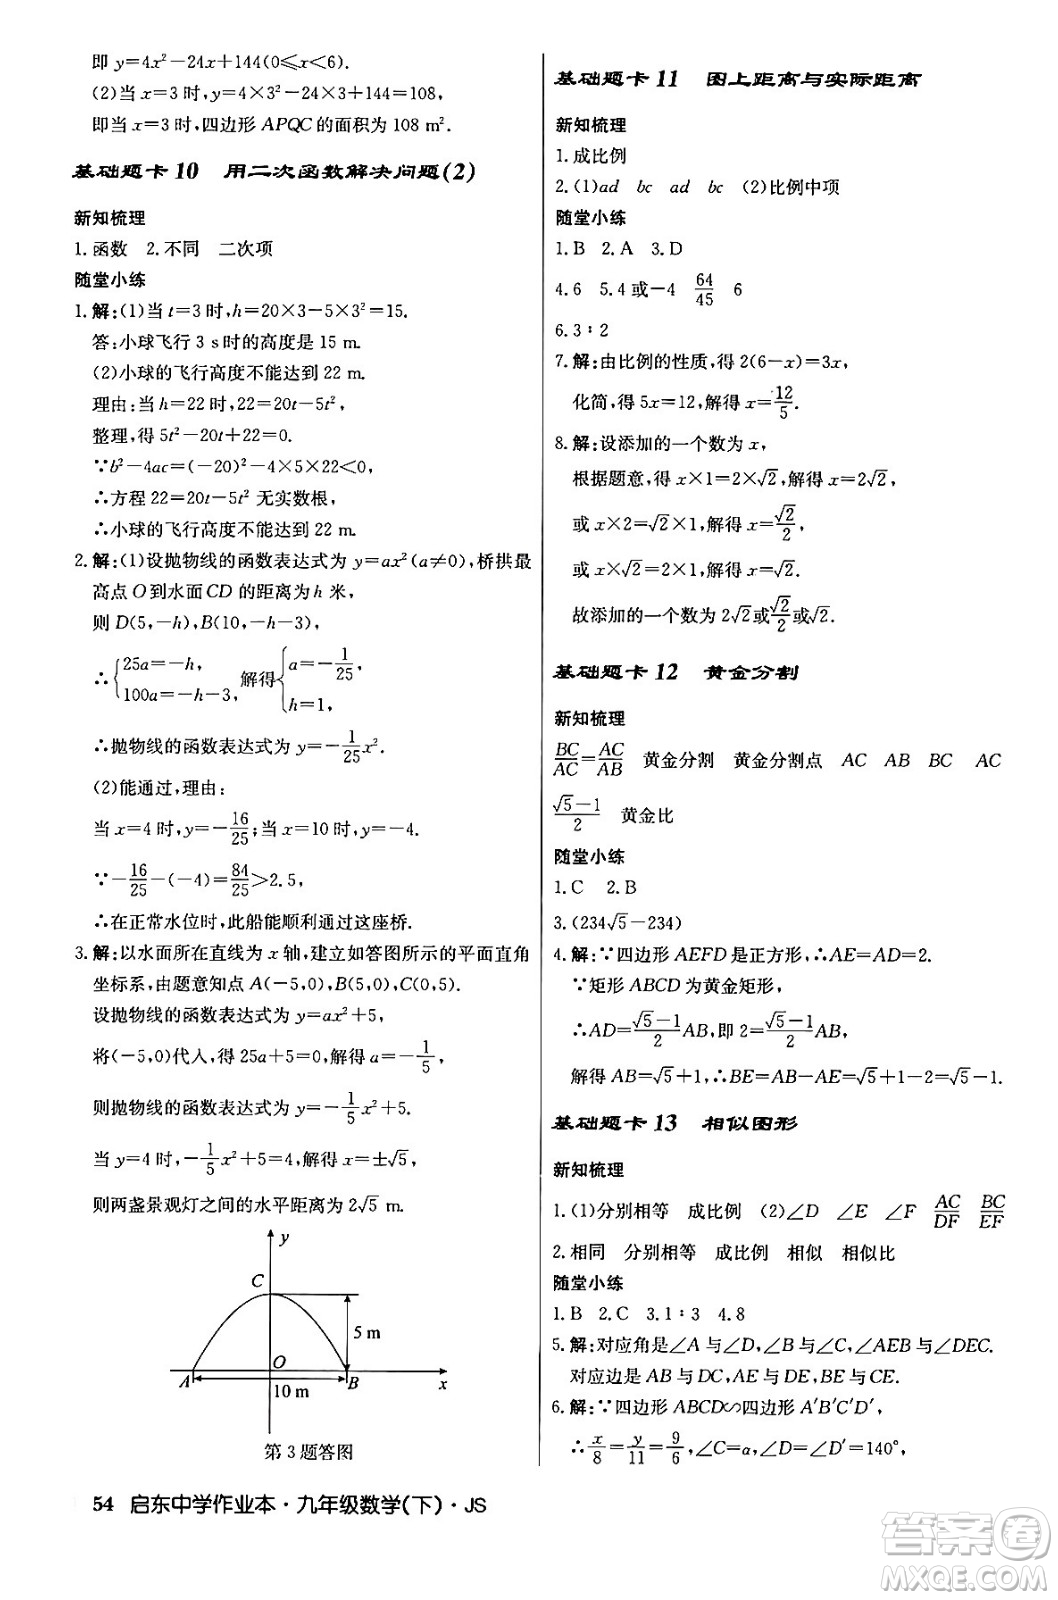 即 y=4x²-24x+144(0⩽x<6).
(2)当 x=3 时,y=4×3²-24×3+144=108,
即当 x=3 时,四边形 APQC 的面积为 108 m².
基础题卡 10 用二次函数解决问题(2)
新知梳理
1.函数 2.不同 二次项
随堂小练
1.解:(1)当 t=3 时,h=20×3-5×3²=15.
答:小球飞行 3 s时的高度是 15 m.
(2)小球的飞行高度不能达到 22 m.
理由:当 h=22 时,22=20t-5t²,
整理,得 5t²-20t+22=0.
∵b²-4ac=(-20)²-4×5×22<0,
∴方程 22=20t-5t² 无实数根,
∴小球的飞行高度不能达到 22 m.
2.解:(1)设抛物线的函数表达式为 y=ax²(a≠0),桥拱最
高点 O 到水面 CD 的距离为 h 米,
则 D(5,-h),B(10,-h-3),
∴{25a=-h, 100a=-h-3, 解得{a=-1/25, h=1,
∴抛物线的函数表达式为 y=-1/25x².
(2)能通过,理由:
当 x=4 时,y=-16/25;当 x=10 时,y=-4.
∵-16/25-(-4)=84/25>2.5,
∴在正常水位时,此船能顺利通过这座桥.
3.解:以水面所在直线为 x 轴,建立如答图所示的平面直角
坐标系,由题意知点 A(-5,0),B(5,0),C(0,5).
设抛物线的函数表达式为 y=ax²+5,
将(-5,0)代人,得 25a+5=0,解得 a=-1/5,
则抛物线的函数表达式为 y=-1/5x²+5.
当 y=4 时,-1/5x²+5=4,解得 x=±√5,
则两盏景观灯之间的水平距离为 2√5 m.
y
C
5 m
O
A
B
x
10 m
第 3 题答图
54 启东中学作业本·九年级数学(下)·JS
基础题卡 11 图上距离与实际距离
新知梳理
1.成比例
2.(1)ad bc ad bc (2)比例中项
随堂小练
1.B 2.A 3.D
4.6 5.4 或-4 64/45 6
6.3∶2
7.解:由比例的性质,得 2(6-x)=3x,
化简,得 5x=12,解得 x=12/5.
8.解:设添加的一个数为 x,
根据题意,得 x×1=2×√2,解得 x=2√2,
或 x×2=√2×1,解得 x=√2/2,
或 x×√2=2×1,解得 x=√2.
故添加的一个数为 2√2或√2/2或√2.
基础题卡 12 黄金分割
新知梳理
BC/AC=AC/AB 黄金分割 黄金分割点 AC AB BC AC
√5-1/2 黄金比
随堂小练
1.C 2.B
3.(234√5-234)
4.解:∵四边形 AEFD 是正方形,∴AE=AD=2.
∵矩形 ABCD 为黄金矩形,
∴AD=√5-1/2AB,即 2=√5-1/2AB,
解得 AB=√5+1,∴BE=AB-AE=√5+1-2=√5-1.
基础题卡 13 相似图形
新知梳理
1.(1)分别相等 成比例 (2)∠D ∠E ∠F AC/DF BC/EF
2.相同 分别相等 成比例 相似 相似比
随堂小练
1.B 2.C 3.1∶3 4.8
5.解:对应角是∠A 与∠D,∠B 与∠C,∠AEB 与∠DEC.
对应边是 AB 与 DC,AE 与 DE,BE 与 CE.
6.解:∵四边形 ABCD∽四边形 A′B′C′D′,
∴x/8=y/11=9/6,∠C=α,∠D=∠D′=140°,
答案卷
MXQE.COM